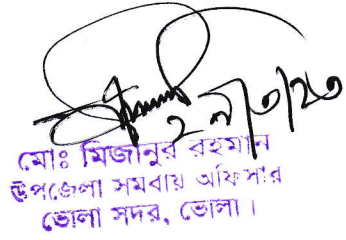 মোঃ মিজানুর রহমান
উপজেলা সমবায় অফিসার
ভোলা সদর, ভোলা।